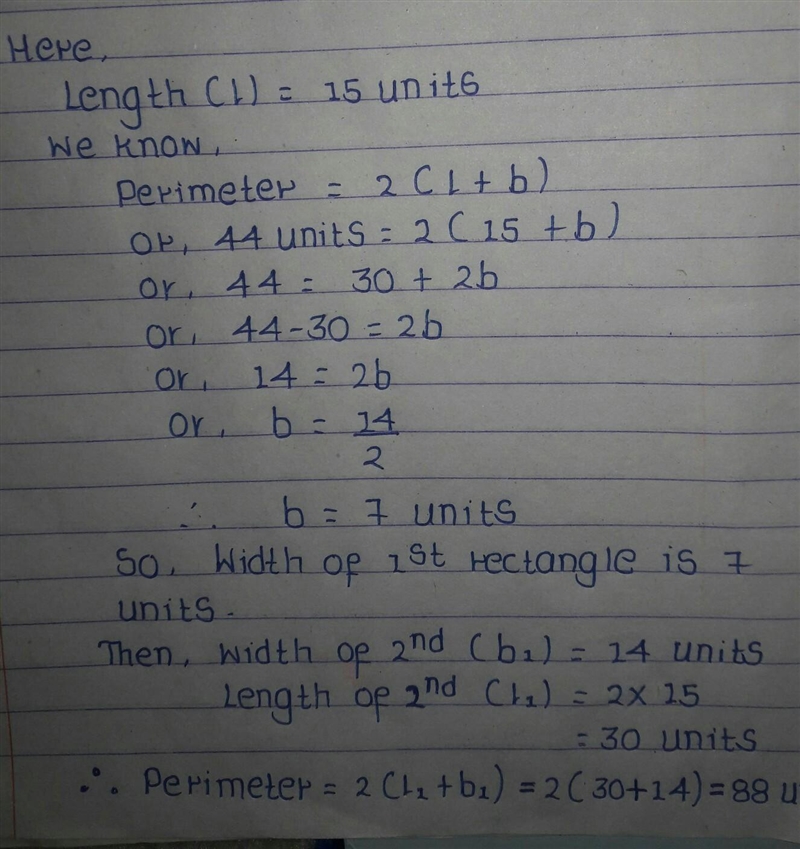 Here,
Length (l) = 15 units
We know,
Perimeter = 2(l + b)
or, 44 units = 2(15 + b)
or, 44 = 30 + 2b
or, 44-30 = 2b
or, 14 = 2b
or, b = 14/2
∴ b = 7 units
So, Width of 1st rectangle is 7
units.
Then, Width of 2nd (b₁) = 14 units
Length of 2nd (l₁) = 2×15
= 30 units
∴ Perimeter = 2(l₁+b₁) = 2(30+14) = 88 u